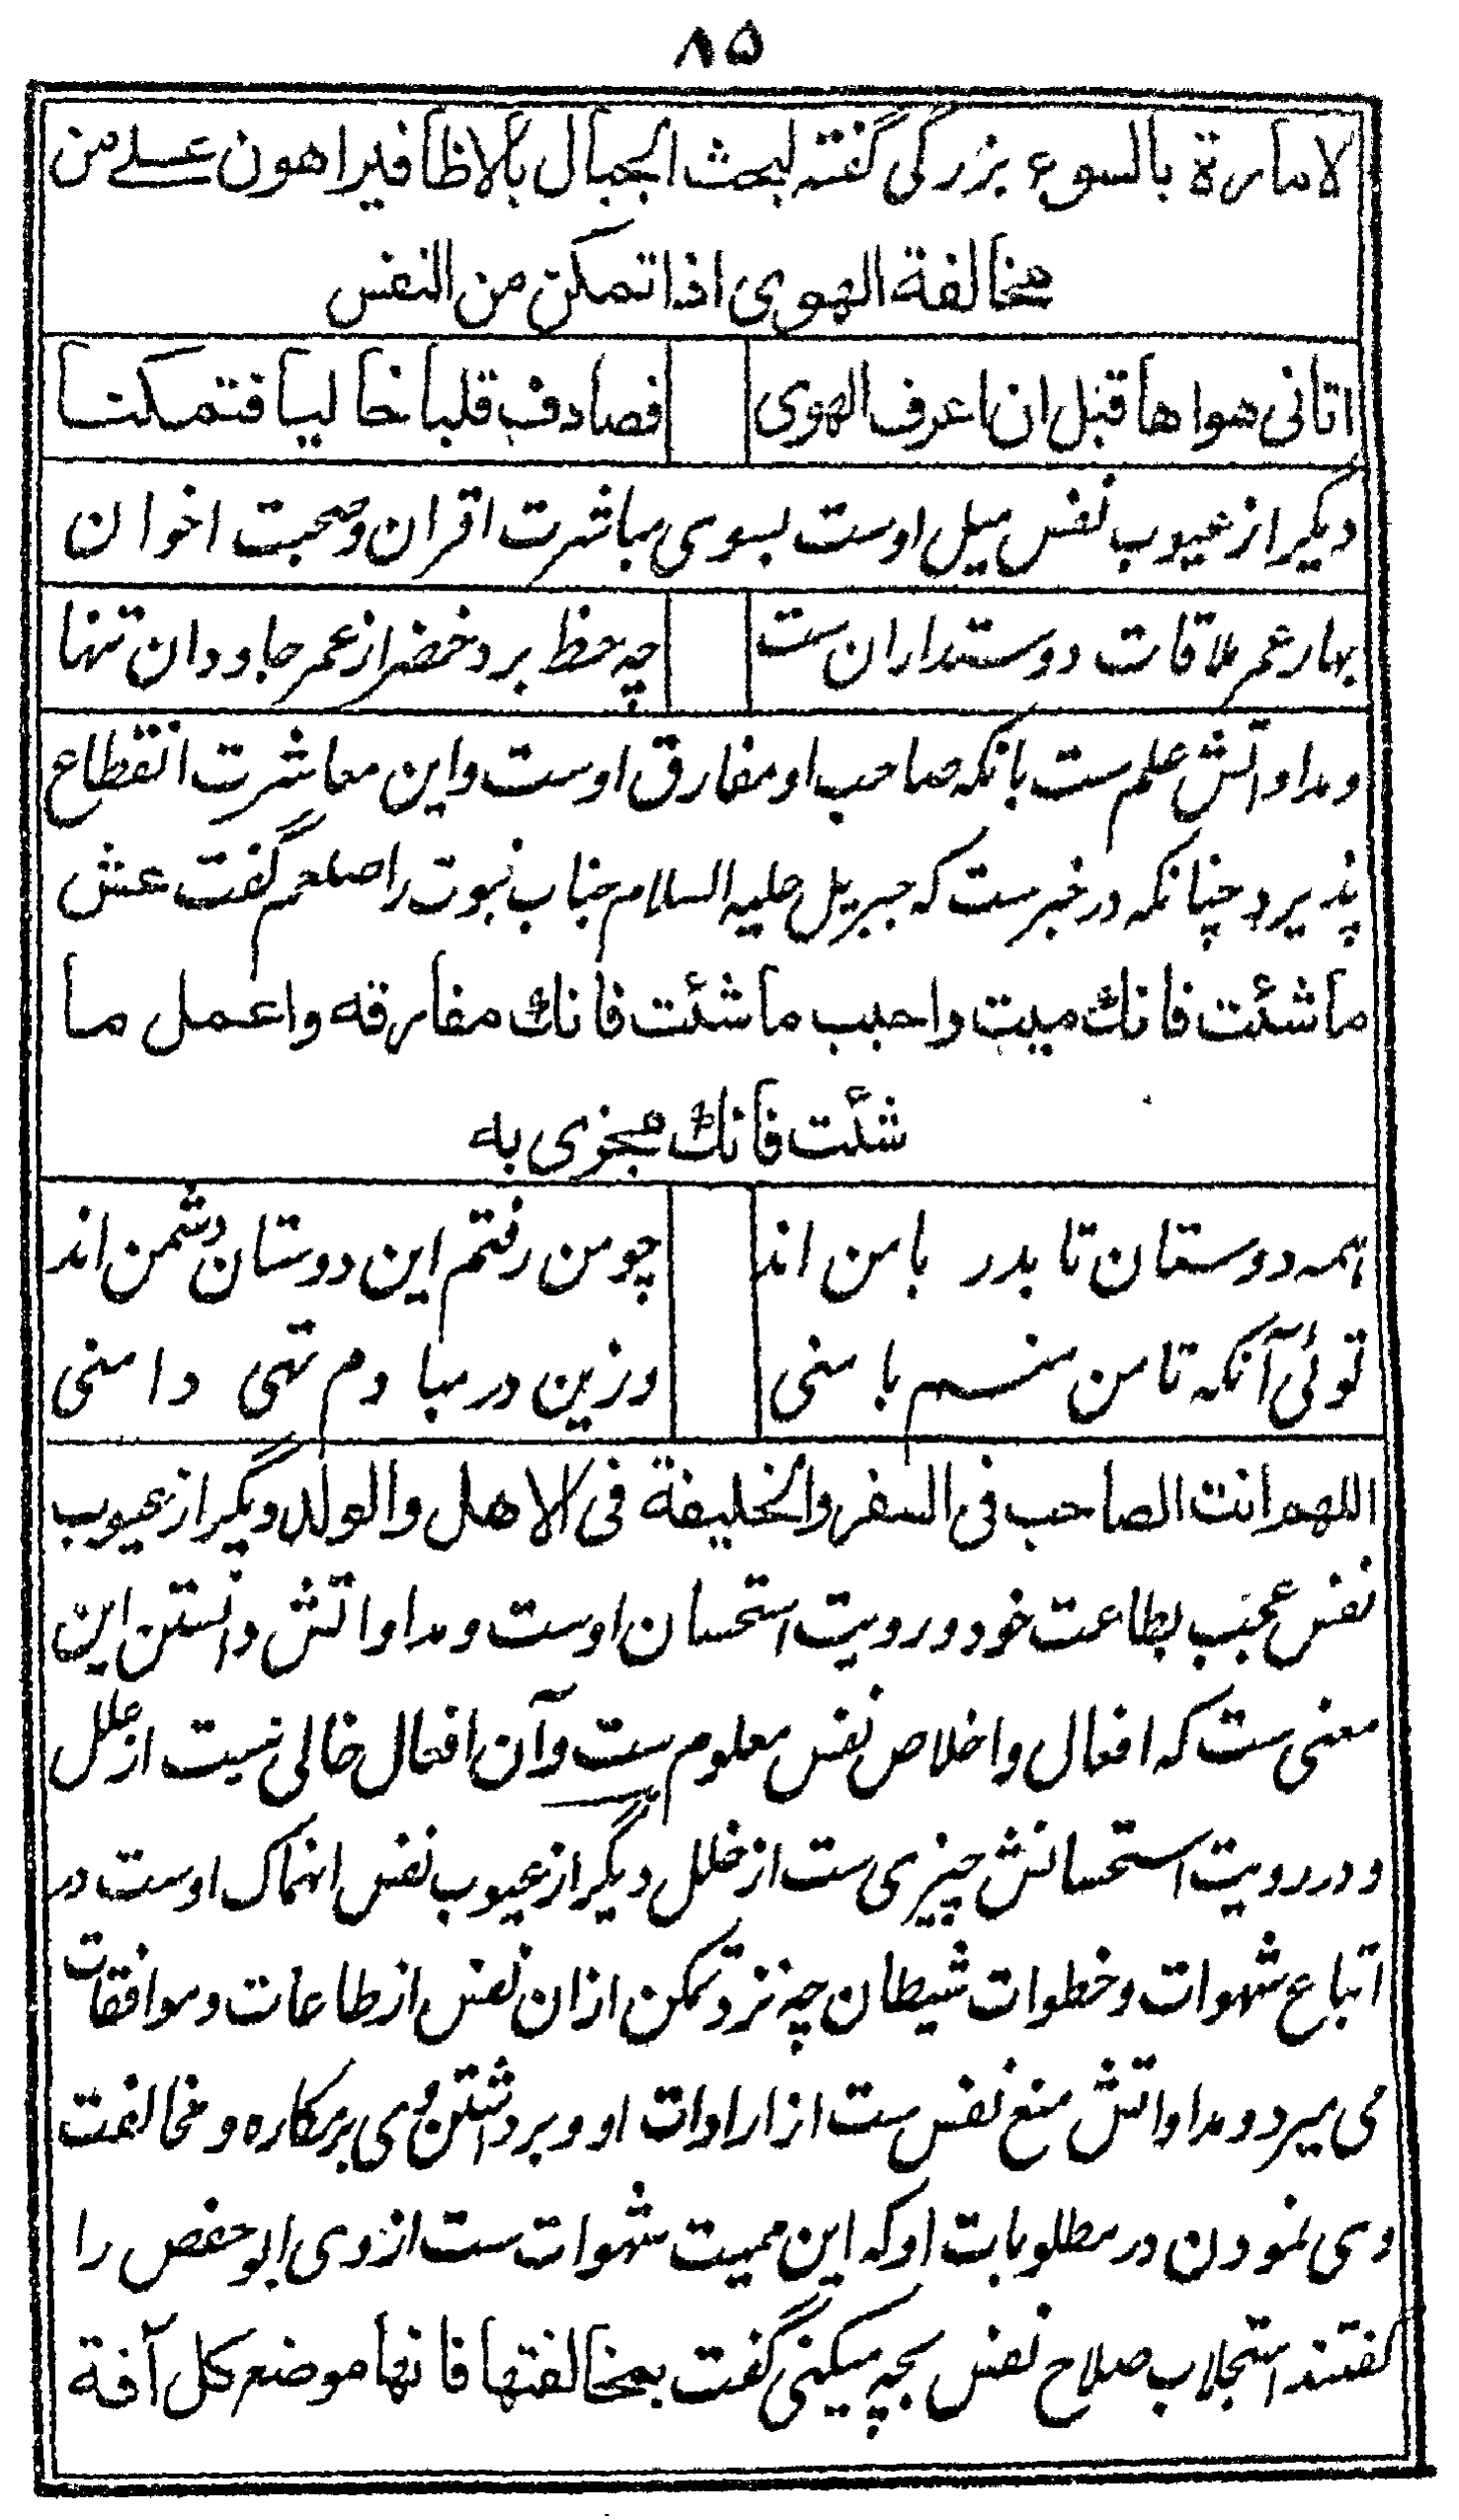 ۸۵
لامارة بالسوء بزرگی گفته لبحث الجبال بالاظافیر اهون علے من
مخالفة الهوی اذا تمکن من النفس
اتانی هواها قبل ان اعرف الهوی فصادف قلبا خالیا فتمکنا
دیگر از عیوب نفس میل اوست بسوی مباشرت اقران و صحبت اخوان
بهار عمر ملاقات دوستداران ست چه حظ برد خضر از عمر جاودان تنها
و مداواتش علم ست بانکه صاحب او مفارق اوست و این معاشرت انقطاع
پذیرد چنانکه در خبرست که جبریل علیه السلام جناب نبوت را صلعم گفت عش
ما شئت فانك میت و احبب ما شئت فانك مفارقه و اعمل ما
شئت فانك مجزی به
همه دوستان تا بدر با من اند چو من رفتم این دوستان دشمن اند
توئی آنکه تا من منم با منی وزین در مبادم تهی دامنی
اللهم انت الصاحب فی السفر والخلیفة فی الاهل والولد دیگر از عیوب
نفس عجب بطاعت خود و رویت استحسان اوست و مداواتش دانستن این
معنی ست که افعال و اخلاص نفس معلوم ست و آن افعال خالی نیست از علل
و در رویت استحسانش چیزی ست از خلل دیگر از عیوب نفس انهماک اوست در
اتباع شهوات و خطوات شیطان چه نزد تمکن ازان نفس از طاعات و موافقات
می میرد و مداواتش منع نفس ست از ارادات او و برداشتن وی بر مکاره و مخالفت
وی نمودن در مطلوبات او که این ممیت شهوات ست از وی ابو حفص را
گفتند استجلاب صلاح نفس بچه میکنی گفت بمخالفتها فانها موضع کل آفة